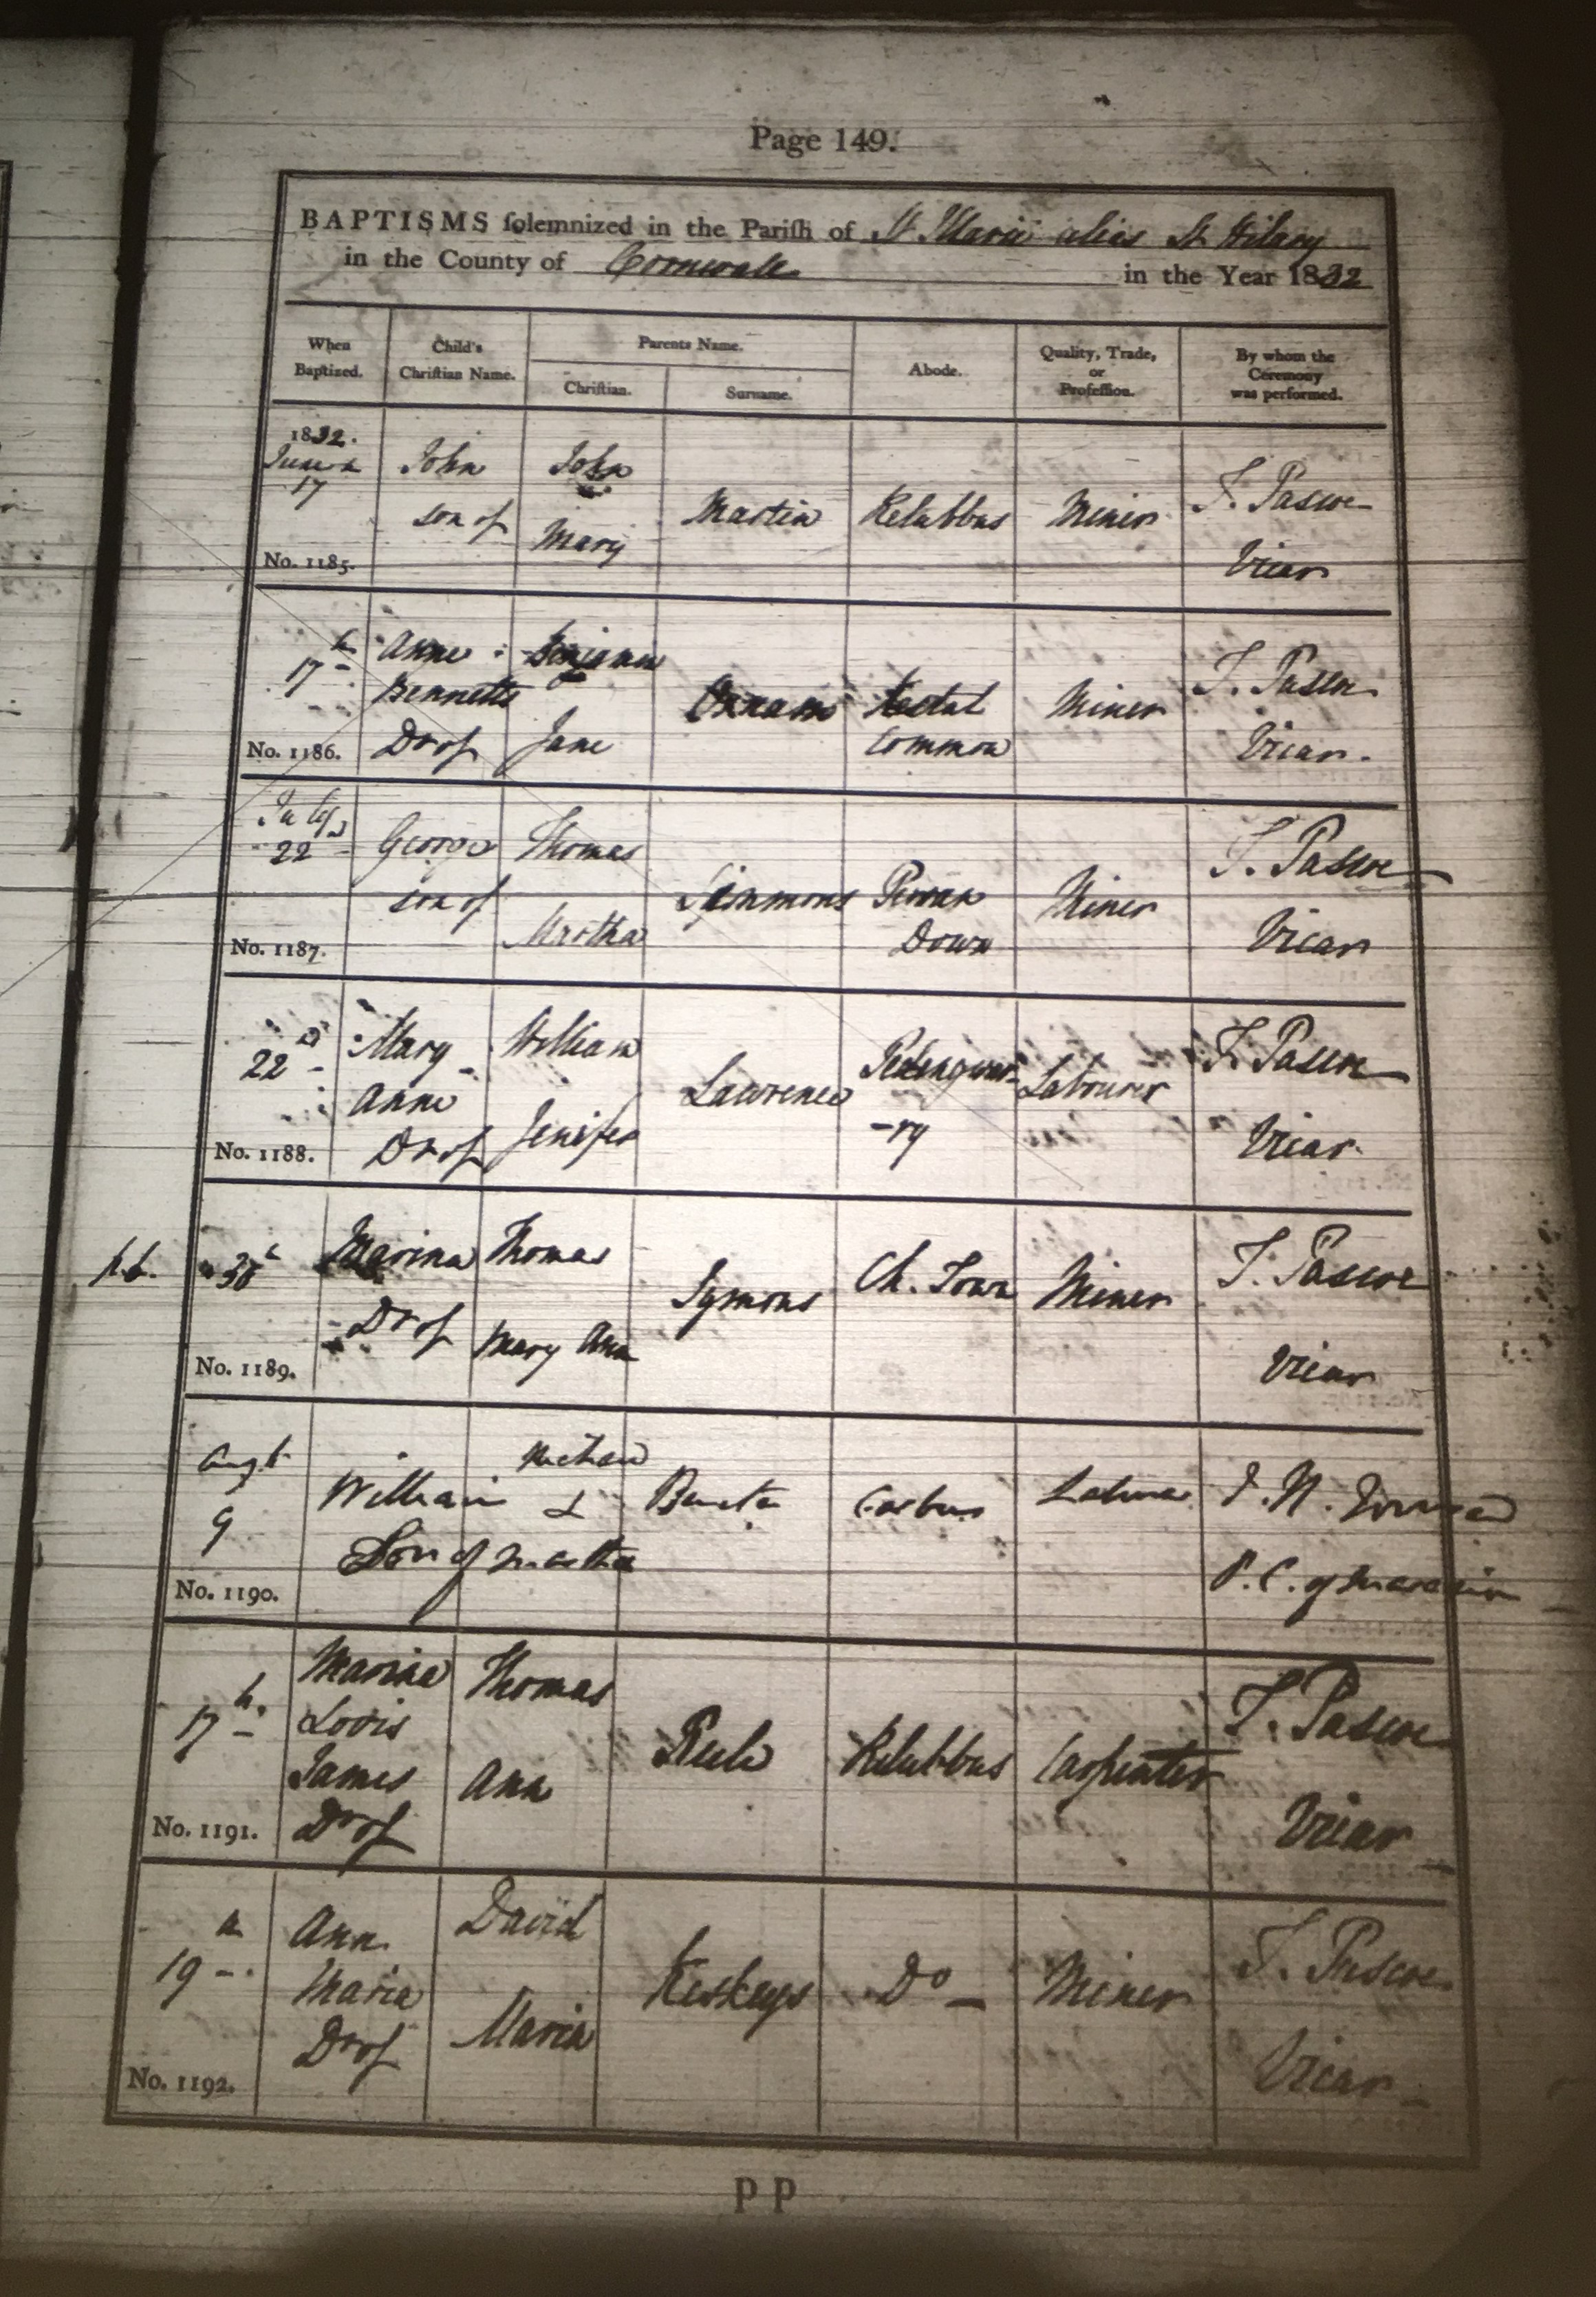 Page 149.
BAPTISMS solemnized in the Parish of St Marii alias St Hilary
in the County of Cornwall in the Year 1832
When Baptized. Child's Christian Name. Parents Name. Christian. Surname. Abode. Quality, Trade, or Profession. By whom the Ceremony was performed.
1832.
June
17
No. 1185.
John
son of
John
Mary
Martin
Relubbus
Miner
T. Pascoe
Vicar
17th
No. 1186.
Anne
Bennetts
Dr of
Benjamin
Jane
Common
Miner
T. Pascoe
Vicar.
July
22
No. 1187.
George
son of
Thomas
Martha
Simmons
Perran
Down
Miner
T. Pascoe
Vicar
22d
No. 1188.
Mary
Anne
Dr of
William
Jenifer
Lawrence
-ry
Labourer
T. Pascoe
Vicar
No. 1189.
Marina
Dr of
Thomas
Mary Ann
Symons
Ch. Town
Miner
T. Pascoe
Vicar
Augt
9
No. 1190.
William
Son of
&
Martha
P. C. of
17th
No. 1191.
Marina
Lovis
James
Dr of
Thomas
Ann
Relubbus
Carpenter
T. Pascoe
Vicar
19
No. 1192.
Ann
Maria
Dr of
David
Maria
Keskeys
Do
Miner
T. Pascoe
Vicar
PP